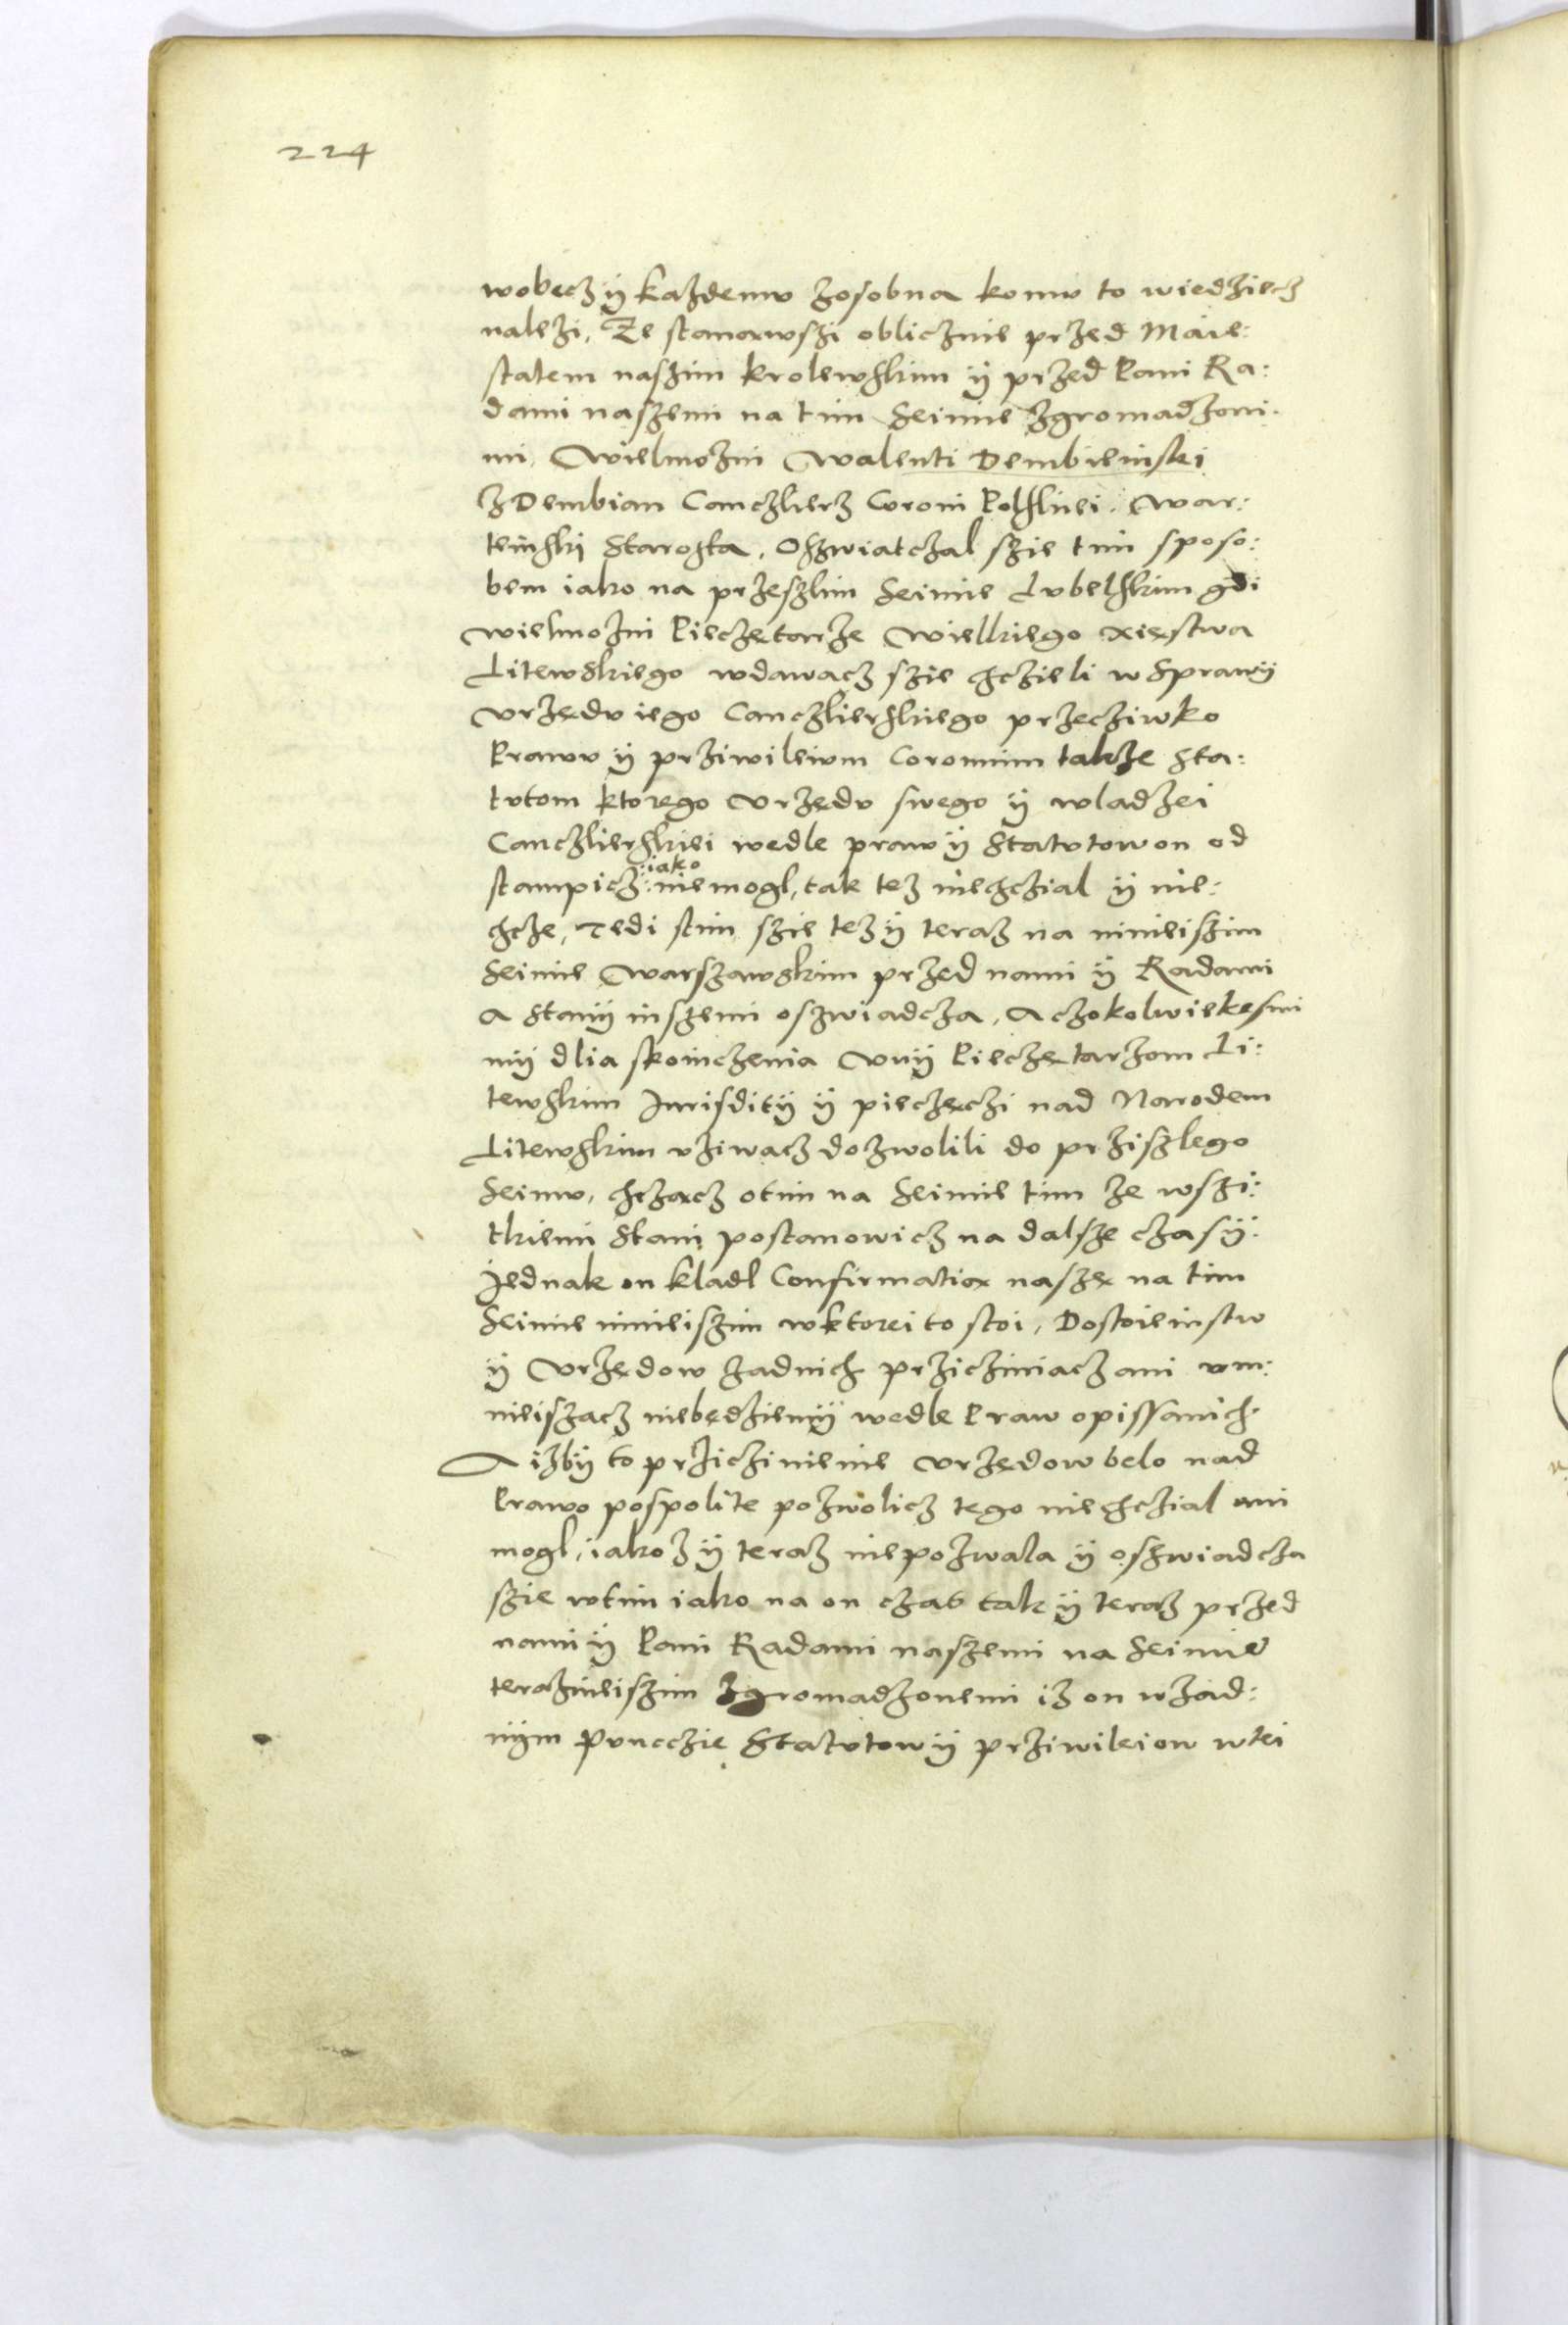 224
wobecz ÿ każdemv zosobna komv to wiedziecz
należi, Że stanąwszi oblicznie przed Maie:
statem naszim krolewskim ÿ przed Pani Ra:
dami naszemi na tim Seimie zgromadzoni:
mi, Wielmożni Walenti Dembienski
z Dembian Canczlierz Coroni Polskiei, War:
teinski Starosta, Oszwiatczal szie tim sposo:
bem iako na przeszlim Seimie Lvbelskim gdi
Wielmożni Pieczętarze Wielkiego Xięstwa
Litewskiego wdawacz szie chczieli w Sprawÿ
Vrzędv iego Canczlierskiego przecziwko
Prawv ÿ prziwileivm Coronnim takze Sta:
tvtom ktorego Vrzędv swego ÿ wladzei
Canczlierskiei wedle praw ÿ Statvtow on od
stampicz :iako: niemogl, tak tez niechczial ÿ nie:
chcze, Tedi stim szie tez ÿ teraz na ninieiszim
Seimie Warszawskim przed nami ÿ Radami
a Stanÿ inszemi oszwiadcza, Aczokolwiekesmi
mÿ dlia skoinczenia Vnÿ Pieczętarzom Li:
tewskim Jurisditÿ ÿ pieczęczi nad Narodem
Litewskim vziwacz dozwolili do prziszlego
Seimv, chcząncz otim na Seimie tim ze wszi:
tkiemi Stani postanowicz na dalsze czasÿ.
Jednak on kladl Confirmatią naszę na tim
Seimie ninieiszim wktorei to stoi, Dostoieinstw
ÿ Vrzędow zadnich prziczyniacz ani vm:
nieiszacz niebędziemÿ wedle Praw opissanich
A izbÿ to prziczinienie Vrzędow belo nad
Prawo pospolite pozwolicz tego niechczial ani
mogl, iakoz ÿ teraz niepozwala ÿ oszwiadcza
szie wtim iako na on czas tak ÿ teraz przed
nami ÿ Pani Radami naszemi na Seimie
terazinieiszim zgromadzonemi iz on wzad:
nÿm Pvnczie Statvtow ÿ prziwileiow wtei